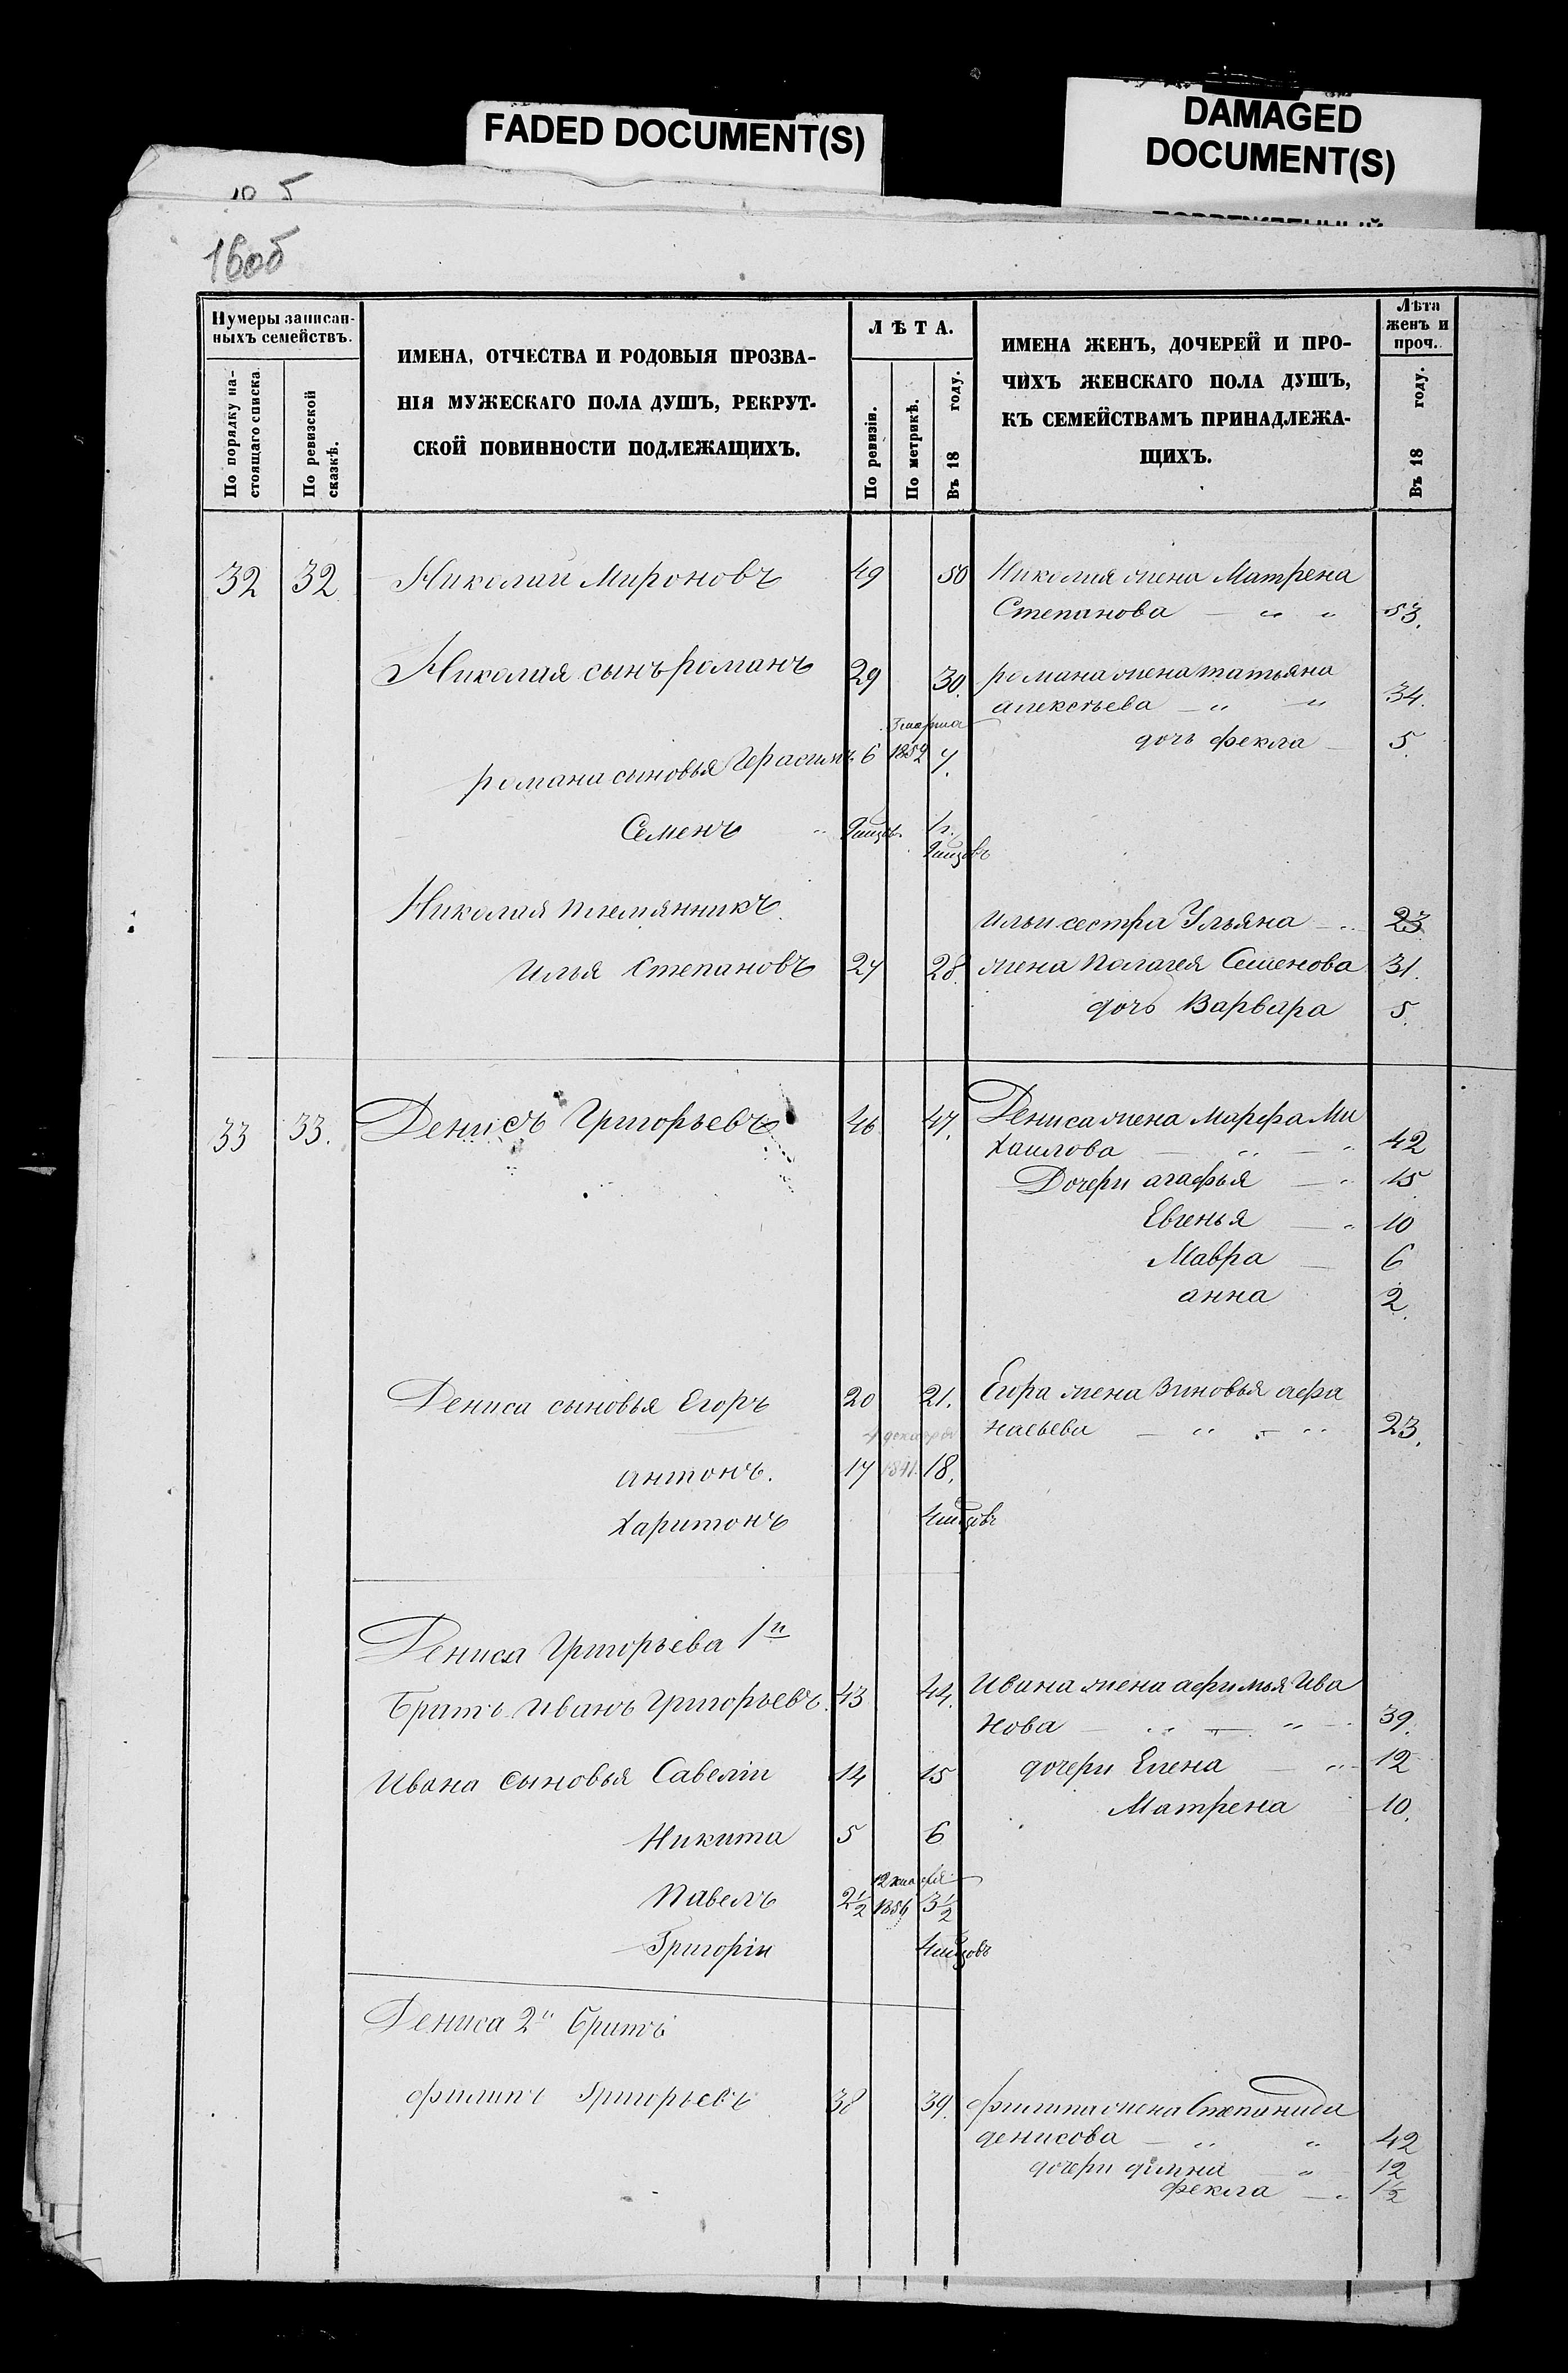 FADED DOCUMENT(S)
DAMAGED
DOCUMENT(S)
160б
Нумеры записан-
ныхъ семействъ.
По порядку на-
стоящаго списка
По ревизской
сказкѣ.
ИМЕНА, ОТЧЕСТВА И РОДОВЫЯ ПРОЗВА-
НІЯ МУЖЕСКАГО ПОЛА ДУШЪ, РЕКРУТ-
СКОЙ ПОВИННОСТИ ПОДЛЕЖАЩИХЪ.
ЛѢТА.
По ревизіи.
По метрикѣ.
Въ 18 году.
ИМЕНА ЖЕНЪ, ДОЧЕРЕЙ И ПРО-
ЧИХЪ ЖЕНСКАГО ПОЛА ДУШЪ,
КЪ СЕМЕЙСТВАМЪ ПРИНАДЛЕЖА-
ЩИХЪ.
Лѣта
женъ и
проч.
Въ 18 году.
32 32 Николай Мироновъ 49 50 Николая жена Матрена
Степанова — „ „ 53.
Николая сынъ романъ 29 30. романа жена татьяна
алексѣева — „ „ 34.
3 марта
дочь фекла 5.
романа сыновья Герасимъ 6 1852 7.
Семенъ „ 9 мцов. 1 г.
9 мцовъ
Николая племянникъ
Ильи сестра Ульяна — „ 23
Илья Степановъ 27 28. жена Палагея Семенова 31.
дочь Варвара 5.
33 33. Денисъ Григорьевъ 46 47. Дениса жена Марфа Ми
хаилова — „ — „ 42
Дочери агафья — „ 15
Евгенья — „ 10
Мавра — 6
анна 2.
Дениса сыновья Егоръ 20 21. Егора жена Зиновья афа
насьева — „ — „ 23.
декабря
антонъ. 17 1841. 18.
Харитонъ 4 мцовъ
Дениса Григорьева 1й
Братъ Иванъ Григорьевъ. 43 44. Ивана жена афимья Ива
нова — „ — „ — 39.
Ивана сыновья Савелiй 14 15 дочери Елена — „ 12
Матрена 10.
Никита 5 6
Павелъ 2½ 3½
Григорiй 4 мцовъ
Дениса 2й братъ
филипъ Григорьевъ 38 39. филипа жена Степанида
денисова — „ „ 42
дочери „ 12
фекла — „ 1½